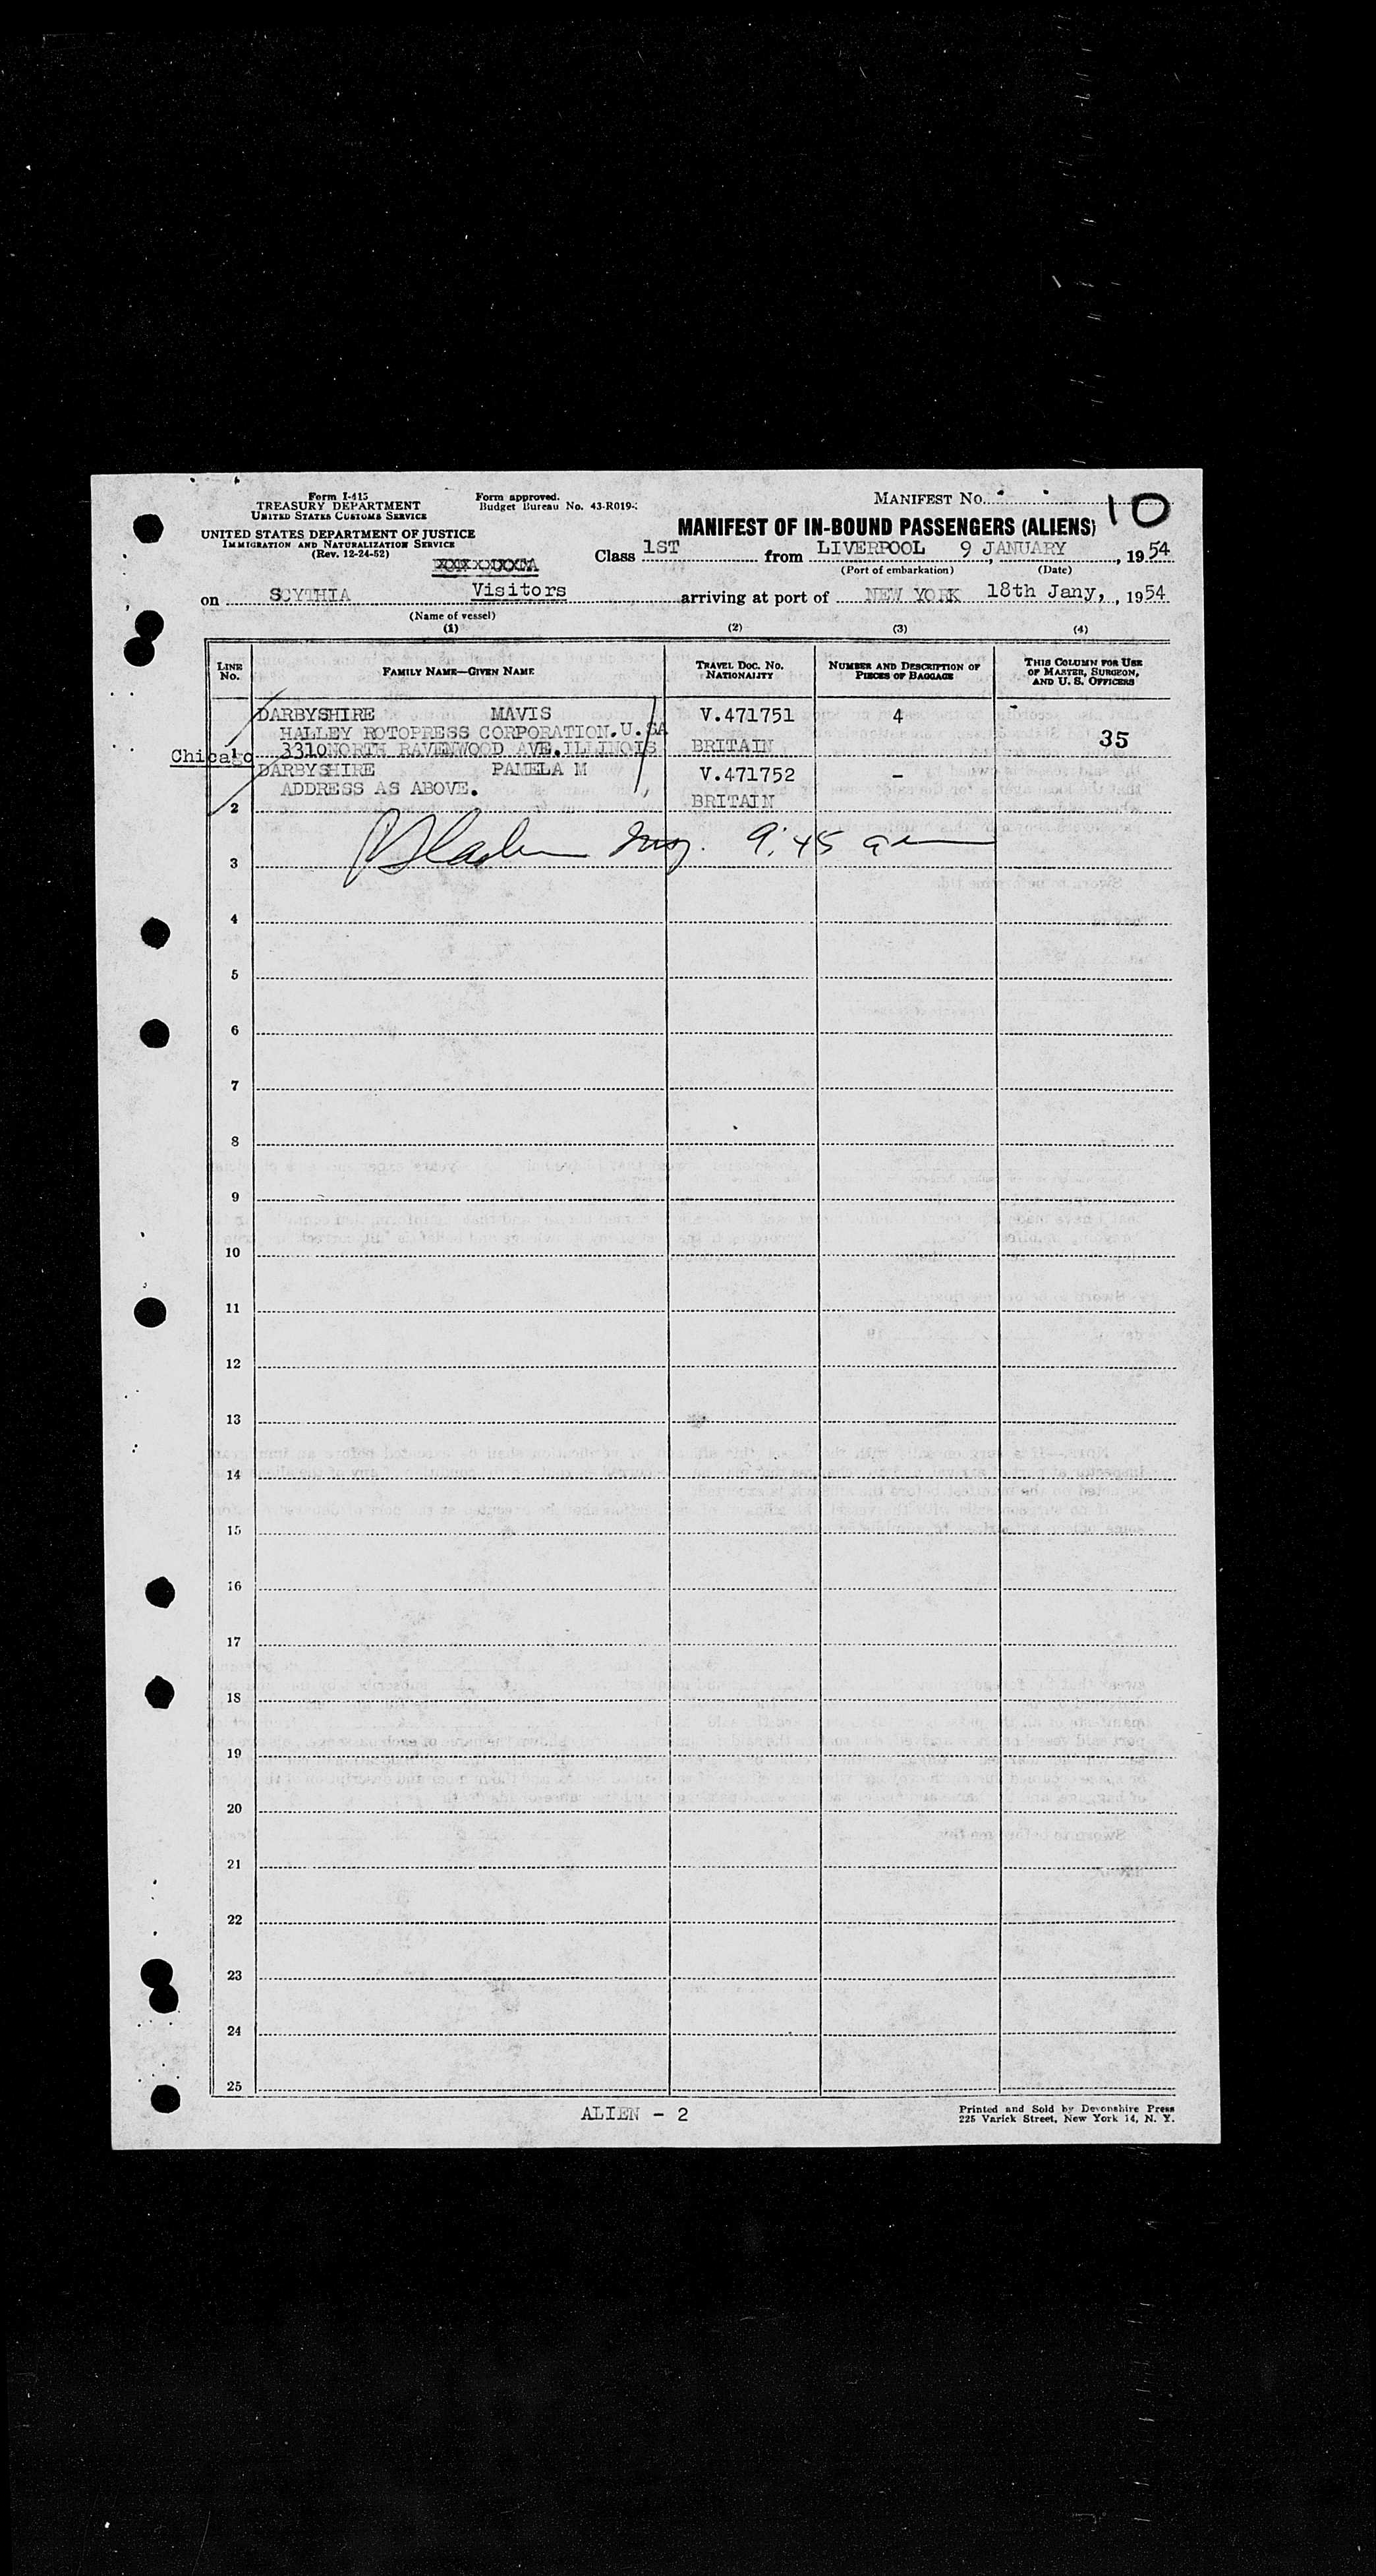 Form I-415
TREASURY DEPARTMENT
UNITED STATES CUSTOMS SERVICE
UNITED STATES DEPARTMENT OF JUSTICE
IMMIGRATION AND NATURALIZATION SERVICE
(Rev. 12-24-52)
Form approved.
Budget Bureau No. 43-R019-
MANIFEST No. 10
MANIFEST OF IN-BOUND PASSENGERS (ALIENS)
Class 1ST from LIVERPOOL 9 JANUARY, 1954
(Port of embarkation) (Date)
on SCYTHIA Visitors arriving at port of NEW YORK 18th Jany, , 1954
(Name of vessel)
(1) (2) (3) (4)
LINE No. FAMILY NAME—GIVEN NAME TRAVEL DOC. NO. NATIONALITY NUMBER AND DESCRIPTION OF PIECES OF BAGGAGE THIS COLUMN FOR USE OF MASTER, SURGEON, AND U. S. OFFICERS
DARBYSHIRE MAVIS V.471751 4
HALLEY ROTOPRESS CORPORATION.U.SA 35
Chicago 1 3310NORTH RAVENWOOD AVE.ILLINOIS BRITAIN
DARBYSHIRE PAMELA M V.471752 -
ADDRESS AS ABOVE.
2 BRITAIN
9:45 am
3
4
5
6
7
8
9
10
11
12
13
14
15
16
17
18
19
20
21
22
23
24
25
ALIEN - 2
Printed and Sold by Devonshire Press
225 Varick Street, New York 14, N. Y.